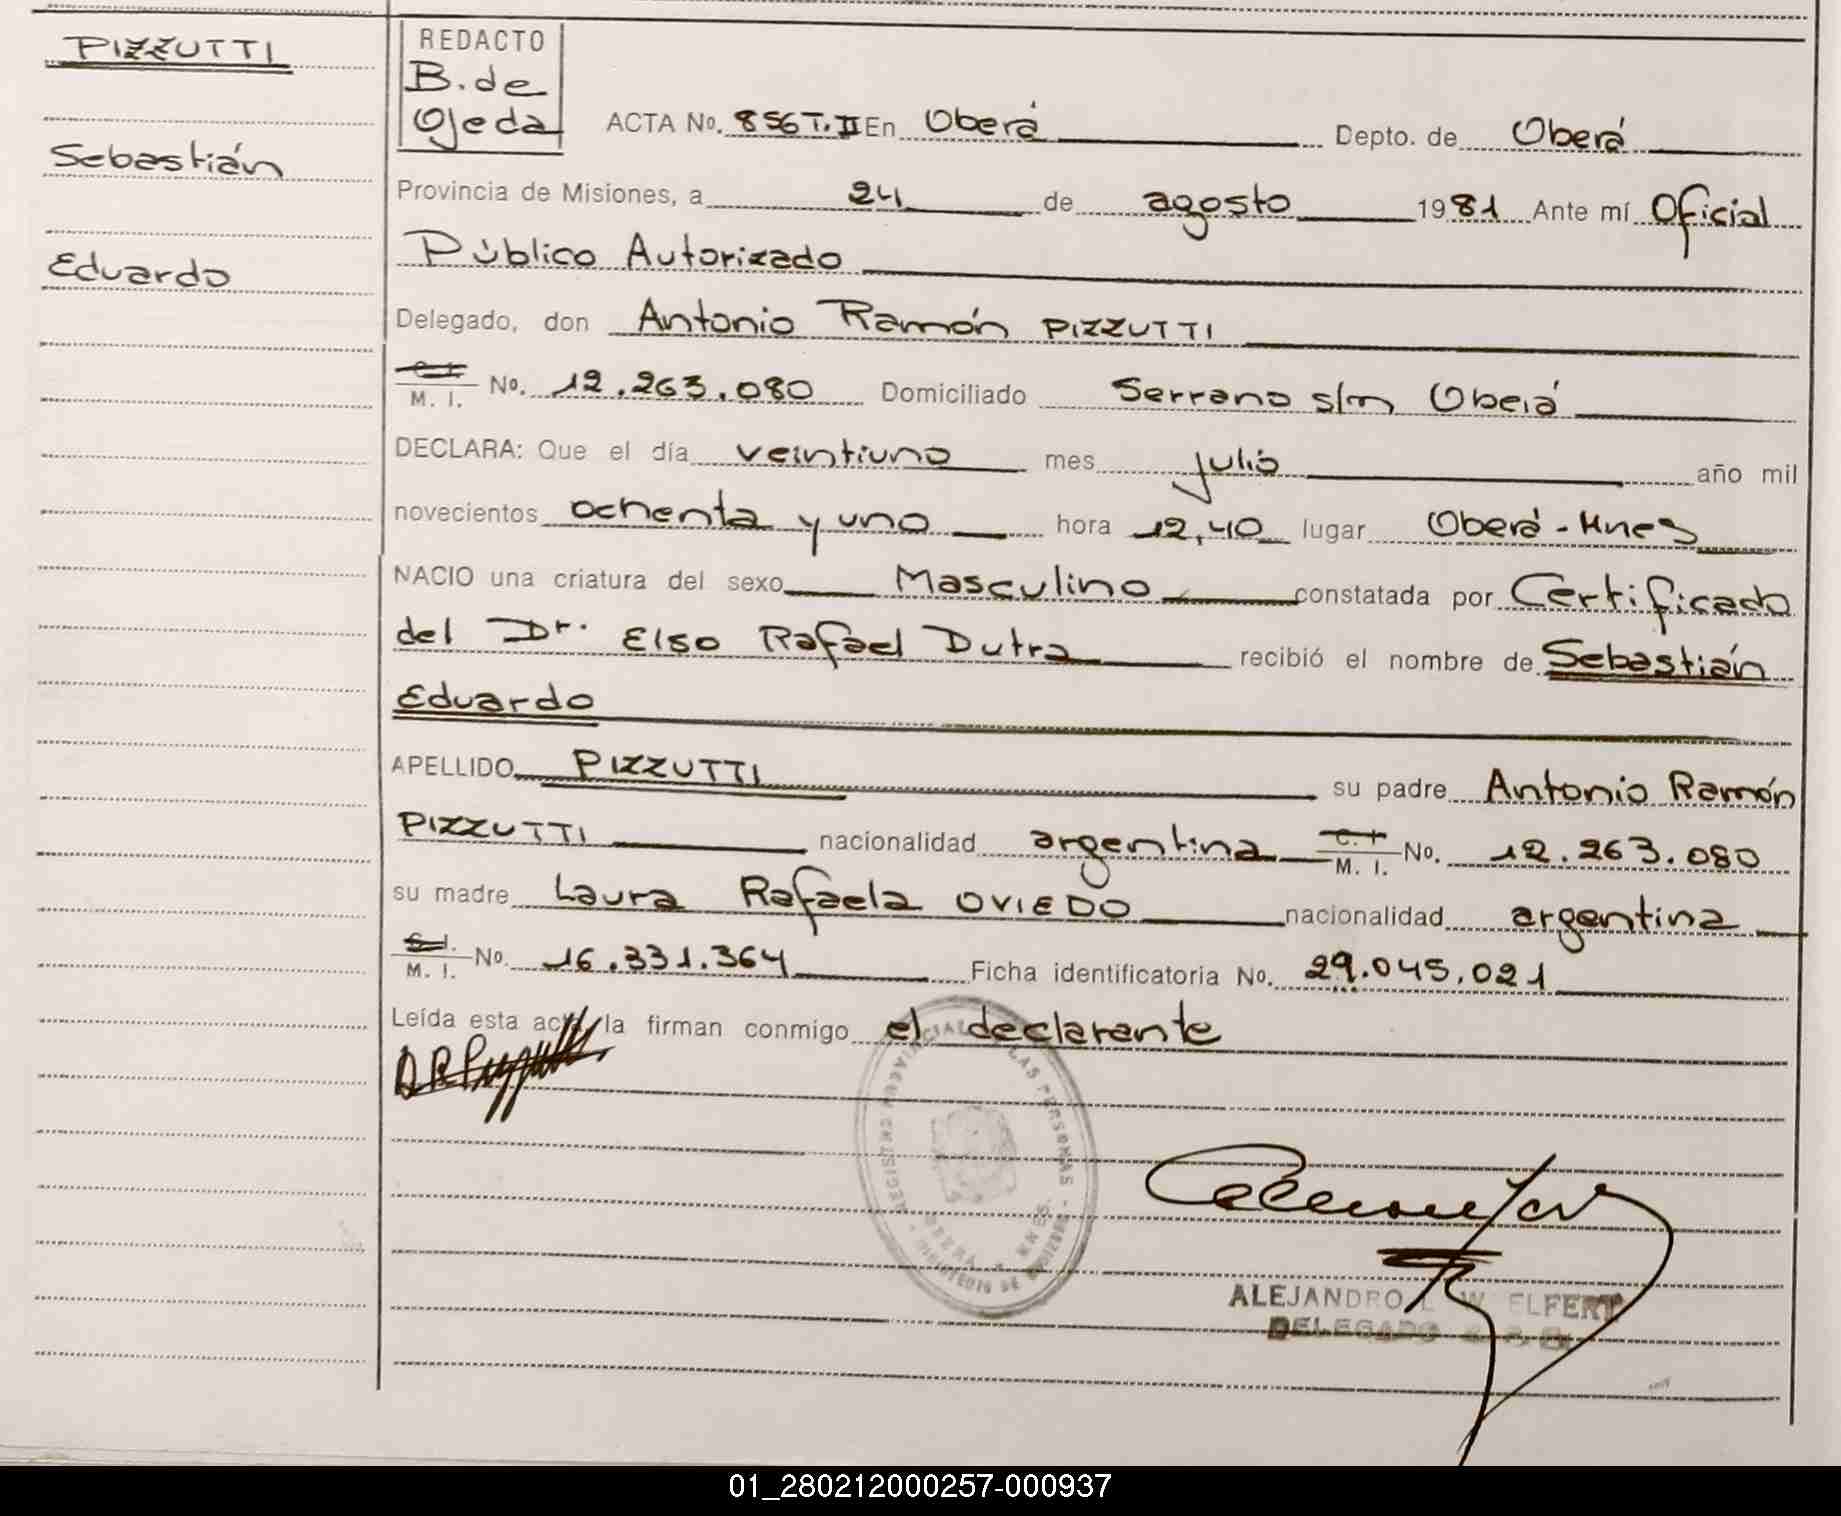 PIZZUTTI
Sebastián
Eduardo
REDACTO
B. de
Ojeda
ACTA No. 856 T. II En Oberá Depto. de Oberá
Provincia de Misiones, a 24 de agosto 1981 Ante mí Oficial
Público Autorizado
Delegado, don Antonio Ramón PIZZUTTI
C. I. M. I. No. 12.263.080 Domiciliado Serrano s/n Oberá
DECLARA: Que el día veintiuno mes julio año mil
novecientos ochenta y uno hora 12,40 lugar Oberá - Mnes
NACIO una criatura del sexo Masculino constatada por Certificado
del Dr. Elso Rafael Dutra recibió el nombre de Sebastián
Eduardo
APELLIDO PIZZUTTI su padre Antonio Ramón
PIZZUTTI nacionalidad argentina C. I. M. I. No. 12.263.080
su madre Laura Rafaela OVIEDO nacionalidad argentina
C. I. M. I. No. 16.331.364 Ficha identificatoria No. 29.045.021
Leída esta acta, la firman conmigo el declarante
A R Pizzutti
REGISTRO PROVINCIAL DE LAS PERSONAS
OBERA MNES.
MINISTERIO DE GOBIERNO
ALEJANDRO L. W. ELFERT
DELEGADO
01_280212000257-000937